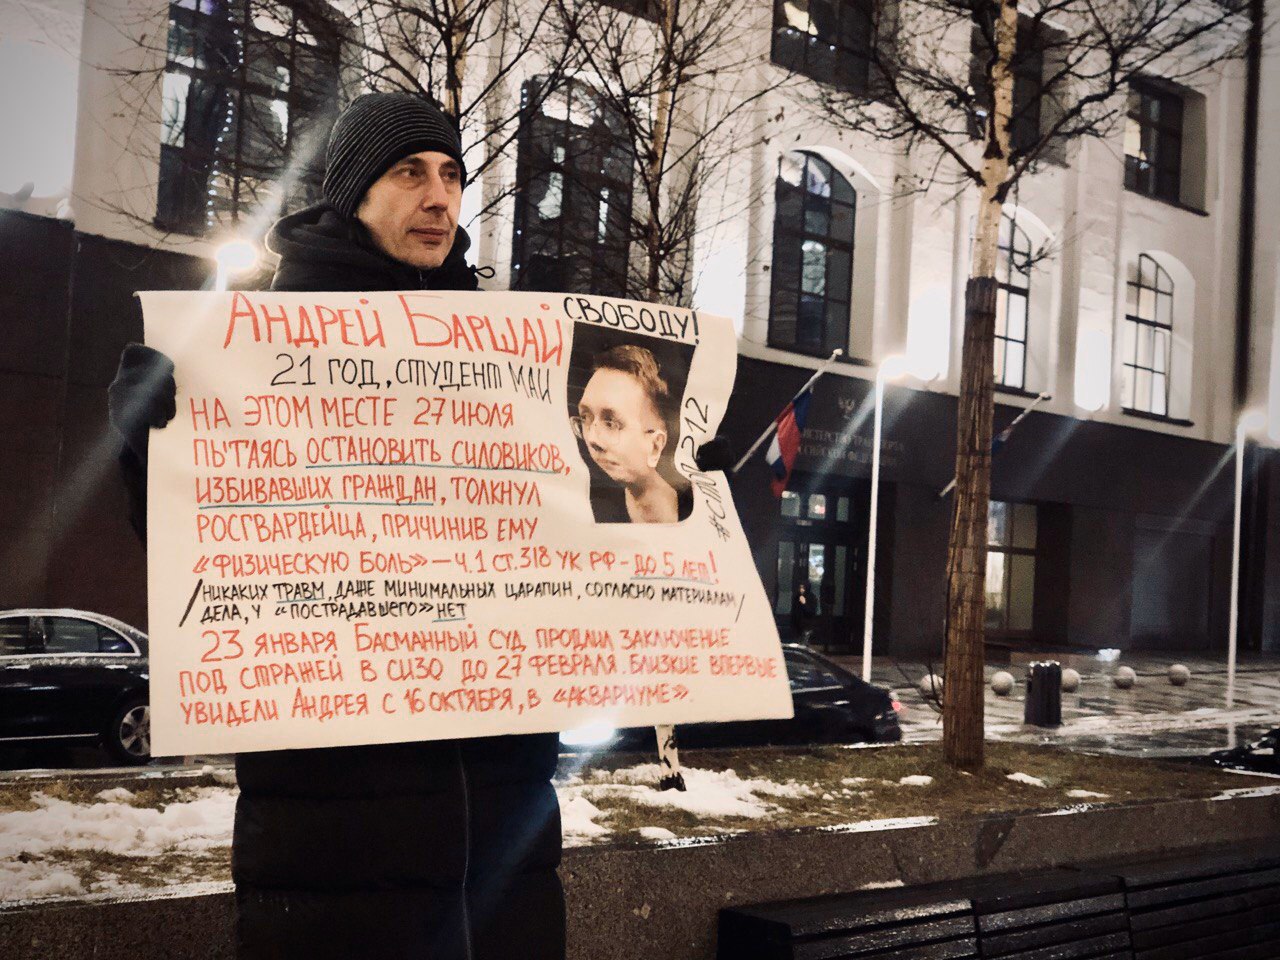 Андрей Баршай
СВОБОДУ!
21 ГОД, СТУДЕНТ МАИ
НА ЭТОМ МЕСТЕ 27 ИЮЛЯ
ПЫТАЯСЬ ОСТАНОВИТЬ СИЛОВИКОВ,
ИЗБИВАВШИХ ГРАЖДАН, ТОЛКНУЛ
РОСГВАРДЕЙЦА, ПРИЧИНИВ ЕМУ
«ФИЗИЧЕСКУЮ БОЛЬ» – Ч.1 СТ.318 УК РФ – ДО 5 ЛЕТ!
/НИКАКИХ ТРАВМ, ДАЖЕ МИНИМАЛЬНЫХ ЦАРАПИН, СОГЛАСНО МАТЕРИАЛАМ
ДЕЛА, У "ПОСТРАДАВШЕГО" НЕТ/
23 ЯНВАРЯ БАСМАННЫЙ СУД ПРОДЛИЛ ЗАКЛЮЧЕНИЕ
ПОД СТРАЖЕЙ В СИЗО ДО 27 ФЕВРАЛЯ. БЛИЗКИЕ ВПЕРВЫЕ
УВИДЕЛИ АНДРЕЯ С 16 ОКТЯБРЯ, В «АКВАРИУМЕ».
#СТОП212